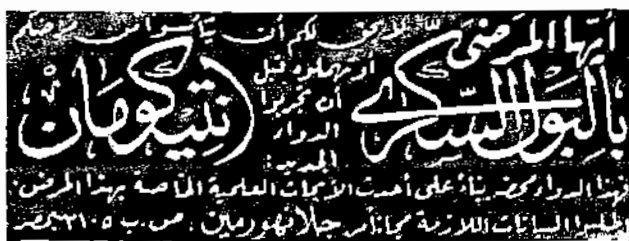 أيها المرضى
بالبول السكرى
لا ينبغى لكم أن تيأسوا من مرضكم
أو تهملوه قبل
أن تجربوا
الدواء
الجديد:
انتيكومان
فهذا الدواء محضر بناء على أحدث الأبحاث العلمية الخاصة بهذا المرض.
اطلبوا البيانات اللازمة مجانا من جلانهورمين. ص. ب ٢١٠٥ بمصر